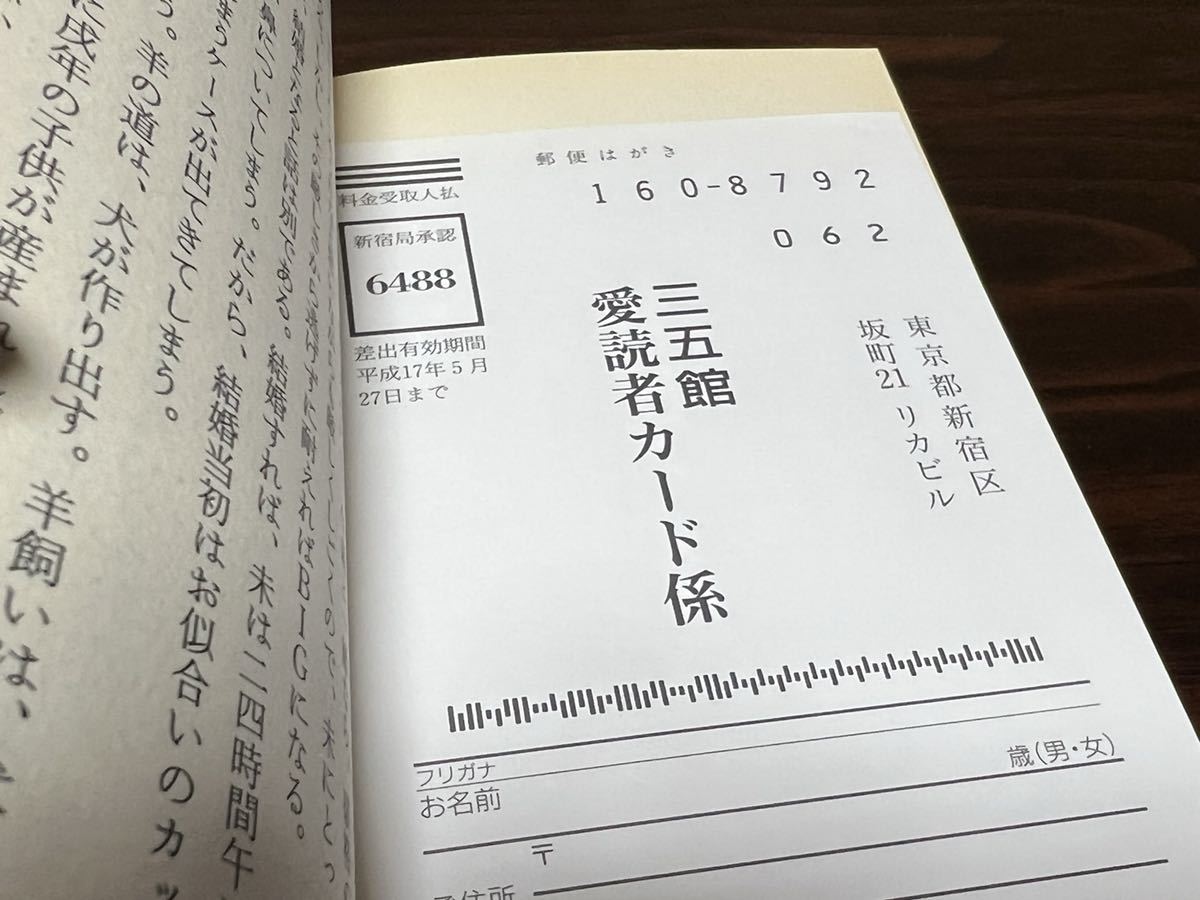 に戌年の子供が産まれ
う。羊の道は、犬が作り出す。羊飼いは、
まうケースが出てきてしまう。
身についてしまう。だから、結婚当初はお似合いのカッ
結婚すると話は別である。結婚すれば、未は二四時間午
に耐えればBIGになる。
郵便はがき
160-8792
062
料金受取人払
新宿局承認
6488
差出有効期間
平成17年5月
27日まで
東京都新宿区
坂町21 リカビル
三五館
愛読者カード係
フリガナ
お名前
歳(男・女)
〒
ご住所